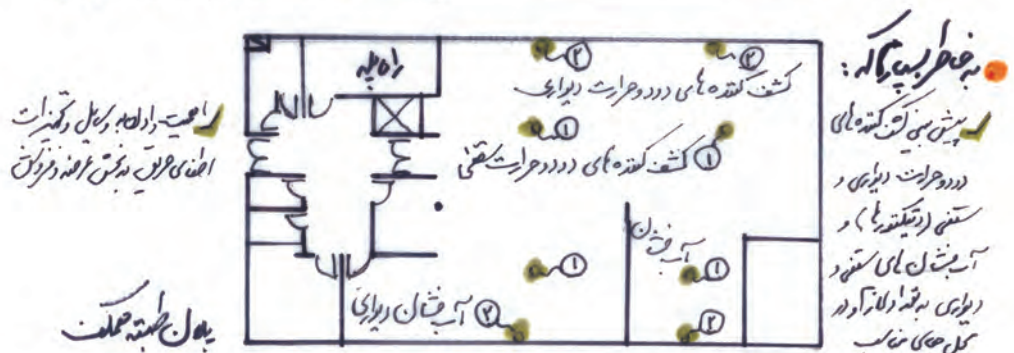 به خاطر بسپار که :
پیش بینی کشف کننده های
دود و حرارت دیواری و
سقفی (دتیکتورها) و
آب فشان های سقفی و
دیواری به تعداد لازم و در
محل های مناسب
راه پله
②
②
کشف کننده های دود و حرارت دیواری
①
① کشف کننده های دود و حرارت سقفی
آب فشان
①
①
② آب فشان دیواری
②
اهمیت دادن به وسایل و تجهیزات
اطفای حریق در بخش عرضه و فروش
پلان طبقه همکف